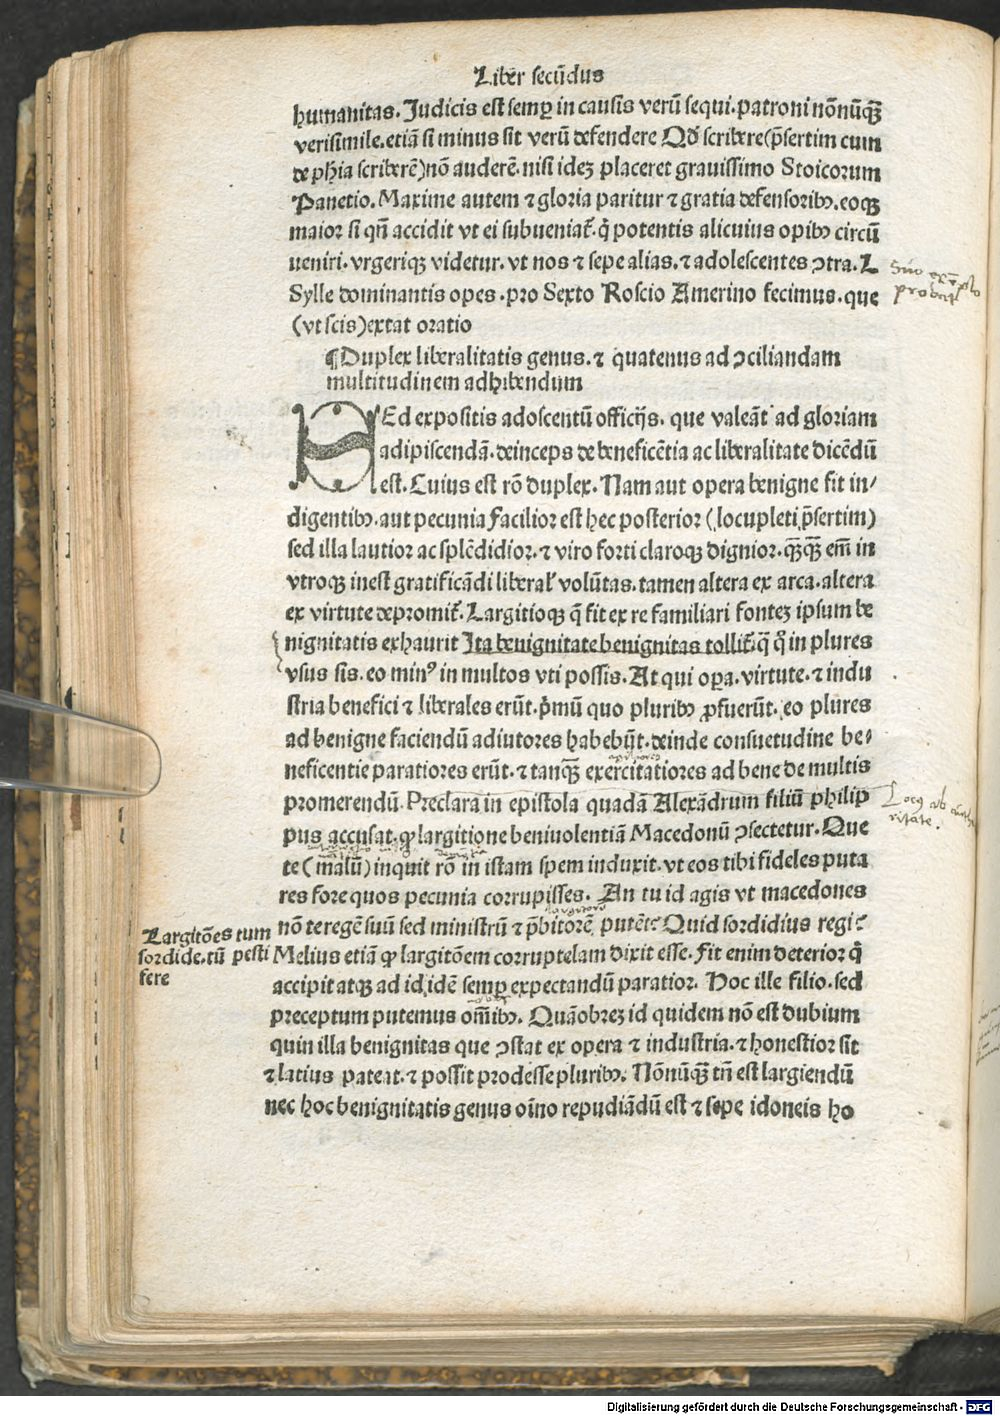 Liber secūdus
humanitas. Judicis est semꝑ in causis verū sequi. patroni nōnūqȝ̄
verisimile. etiā si minus sit verū defendere Qd̛ scribere (p̄sertim cum
de phīa scriberē) nō auderē. nisi ideȝ placeret grauissimo Stoicorum
Panetio. Maxime autem ⁊ gloria paritur ⁊ gratia defensoribꝰ. eoqȝ
maior si qn̄ accidit vt ei subueniat᷑. q̇ potentis alicuius opibꝰ circū
ueniri. vrgeriqȝ videtur. vt nos ⁊ sepe alias. ⁊ adolescentes ↄtra. L
Sylle dominantis opes. pro Sexto Roscio Amerino fecimus. que
(vt scis) extat oratio
Suo exēplo
probat
¶ Duplex liberalitatis genus. ⁊ quatenus ad ↄciliandam
multitudinem adhibendum
SEd expositis adoscentū officijs. que valeāt ad gloriam
adipiscendā. deinceps de beneficētia ac liberalitate dicēdū
est. Cuius est rō duplex. Nam aut opera benigne fit in/
digentibꝰ. aut pecunia Facilior est hec posterior (locupleti p̄sertim)
sed illa lautior ac splēdidior. ⁊ viro forti claroqȝ dignior. qȝ̄qȝ̄ em̄ in
vtroqȝ inest gratificādi liberal' volūtas. tamen altera ex arca. altera
ex virtute depromit᷑. Largitioqȝ q̄ fit ex re familiari fonteȝ ipsum be
nignitatis exhaurit Ita benignitate benignitas tollit᷑. q̄ q̊ in plures
vsus sis. eo minꝰ in multos vti possis. At qui oꝑa. virtute. ⁊ indu
stria benefici ⁊ liberales erūt. p̄mū quo pluribꝰ ꝓfuerūt. eo plures
ad benigne faciendū adiutores habebūt. deinde consuetudine be/
neficentie paratiores erūt. ⁊ tanqȝ̄ exercitatiores ad bene de multis
promerendū. Preclara in epistola quadā Alexādrum filiū philip
pus accusat. ꝙ largitione beniuolentiā Macedonū ↄsectetur. Que
te (malū) inquit rō in istam spem induxit. vt eos tibi fideles puta
res fore quos pecunia corrupisses. An tu id agis vt macedones
nō te regē suū sed ministrū ⁊ p̄bitorē putēt? Quid sordidius regi?
Melius etiā ꝙ largitōem corruptelam dixit esse. Fit enim deterior q̇
accipit atqȝ ad id idē semꝑ expectandū paratior. Hoc ille filio. sed
preceptum putemus om̄ibꝰ. Quāobreȝ id quidem nō est dubium
quin illa benignitas que ↄstat ex opera ⁊ industria. ⁊ honestior sit
⁊ latius pateat. ⁊ possit prodesse pluribꝰ. Nōnūqȝ̄ tn̄ est largiendū
nec hoc benignitatis genus oīno repudiādū est ⁊ sepe idoneis ho
Locus ab aucto
ritate.
Largitōes tum
sordide. tū pesti
fere
Digitalisierung gefördert durch die Deutsche Forschungsgemeinschaft - DFG